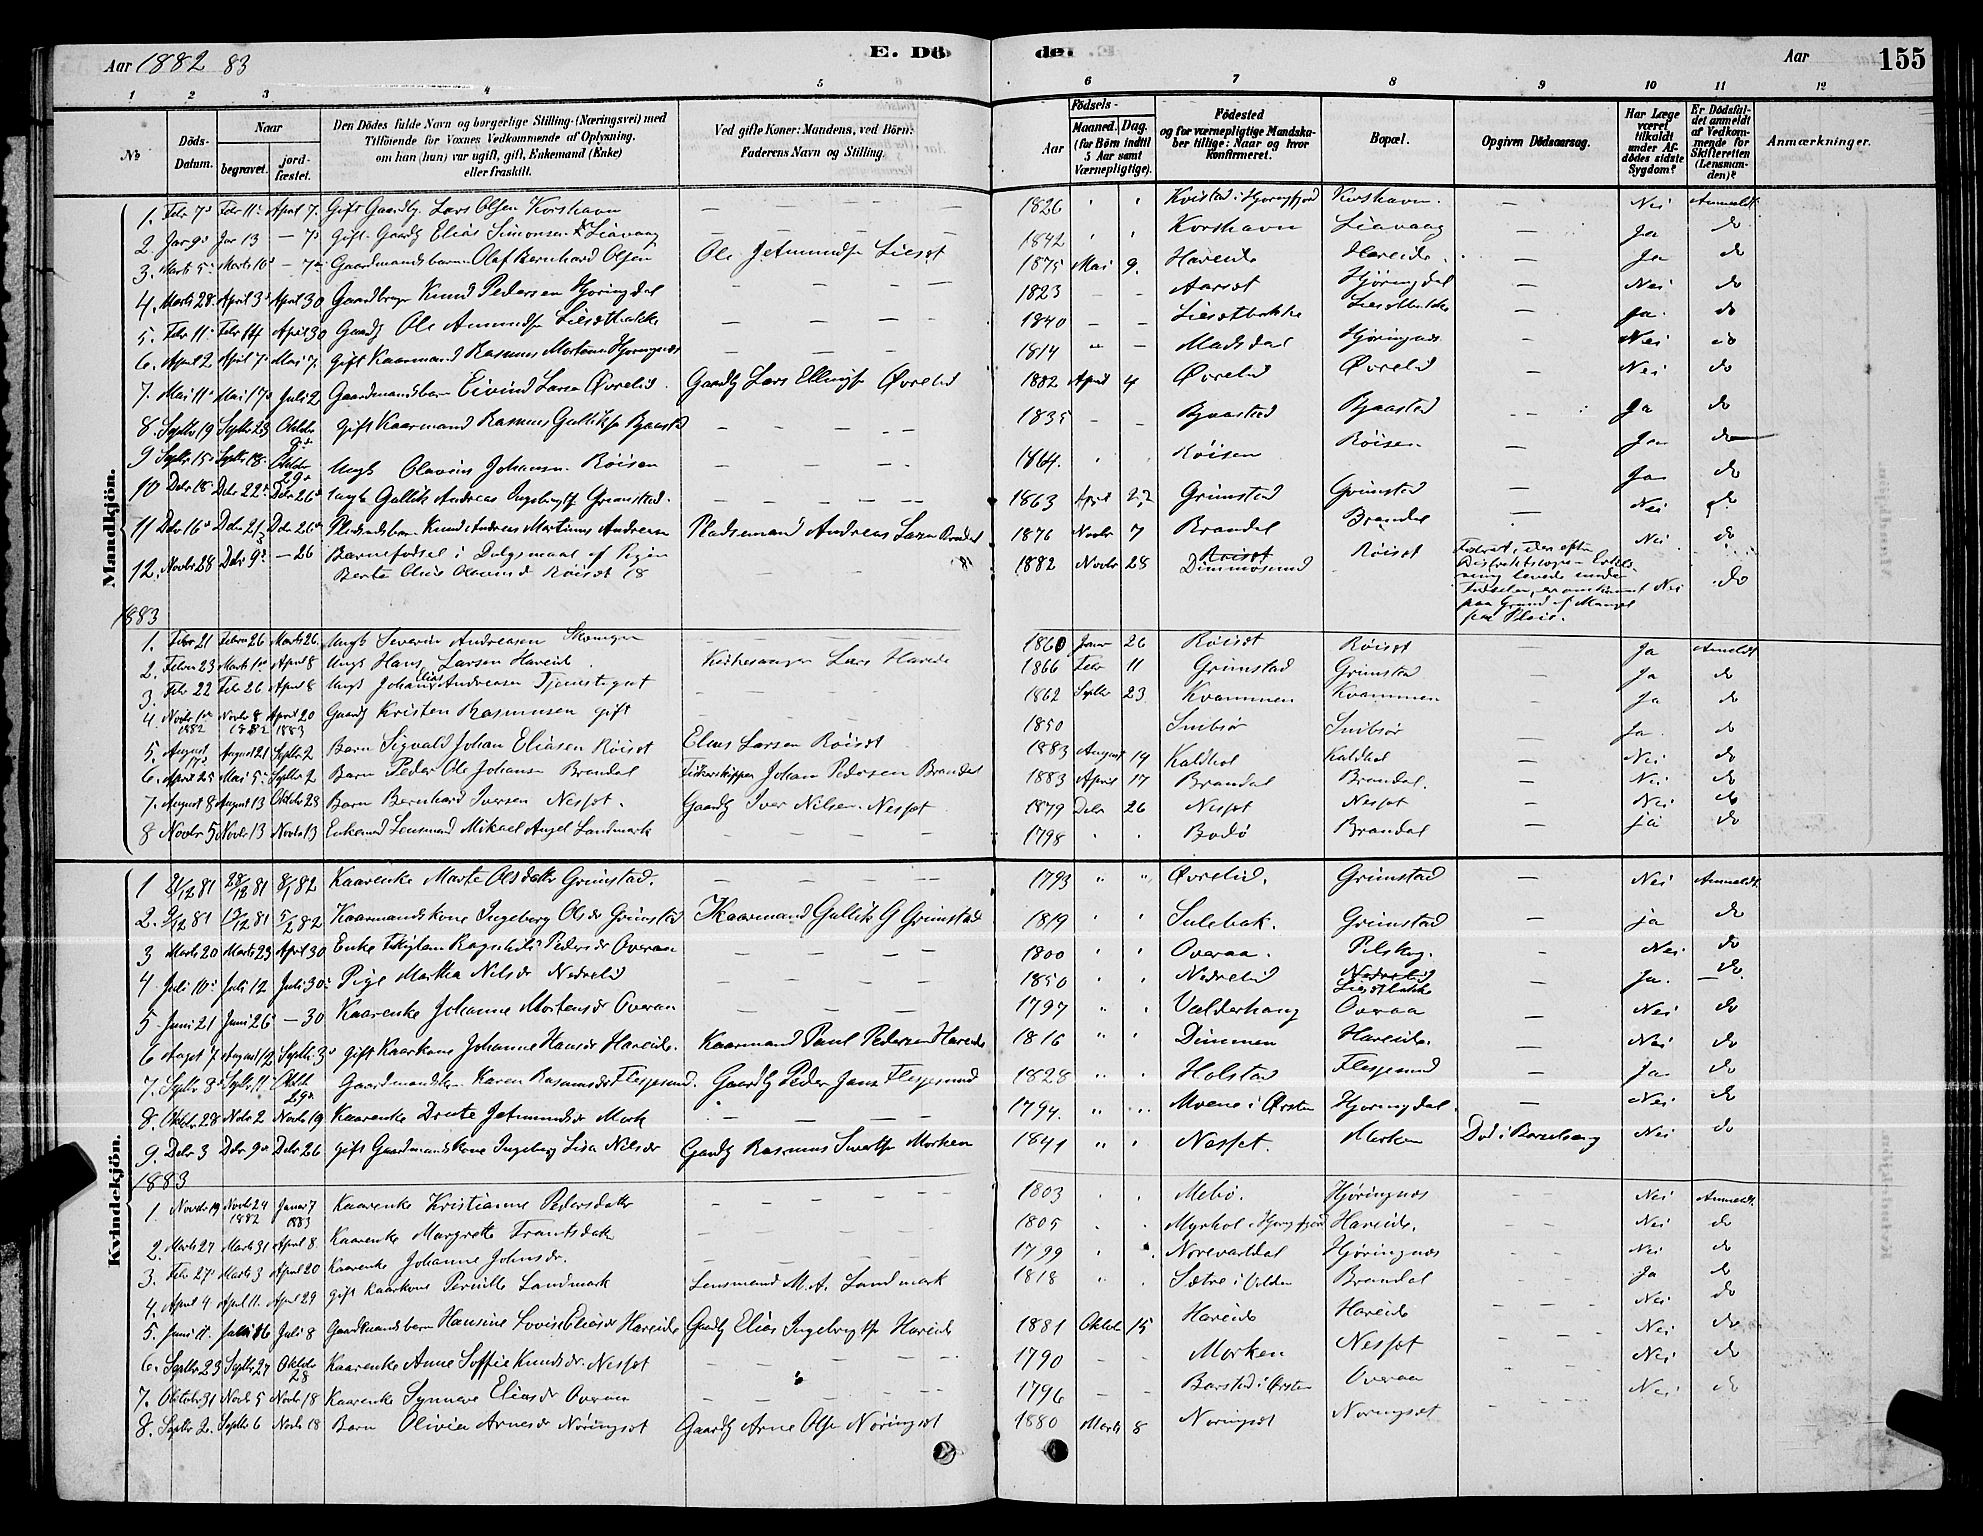 Aar 1882 83
E. Dö
de.
Aar
155
1 2 3 4 5 6 7 8 9 10 11 12
№
Döds-Datum.
Naar
begravet.
jord-fæstet.
Den Dödes fulde Navn og borgerlige Stilling (Næringsvei) med
Tilföiende for Voxnes Vedkommende af Oplysning,
om han (hun) var ugift, gift, Enkemand (Enke)
eller fraskilt.
Ved gifte Koner: Mandens, ved Börn:
Faderens Navn og Stilling.
Födsels-
Aar
Maaned. Dag.
(for Börn indtil
5 Aar samt
Værnepligtige).
Födested
og for værnepligtige Mandska-
ber tillige: Naar og hvor
konfirmeret.
Bopæl.
Opgiven Dödsaarsag.
Har Læge
været
tilkaldt
under Af-
dödes sidste
Sygdom?
Er Dödsfal-
det anmeldt
af Vedkom-
mende for
Skifteretten
(Lensman-
den)?
Anmærkninger.
Mandkjön.
1. Febr 7 Febr 11 April 7. Gift Gaardbr. Lars Olsen Korshavn — — — 1826 Kvistad i Hjørungfjord Korshavn. — Nei Anmeldt.
2. Jan 9 Jan 13 — 7 Gift Gaardbr Elias Simonsen Liavaag — — — 1842 Korshavn Liavaag — Ja do
3. Marts 5 Marts 10 — 7 Gaardmandsbarn Olaf Bernhard Olsen Ole Jetmundss Liesæt 1875 Mai 9. Hareide Hareide. — Ja do
4. Marts 28. April 3 April 30 Gaardbruger Knud Pedersen Hjøringdal — — — 1823 — — Aarset Hjøringdal — Nei do
5. Febr 11 Febr 14 April 30 Gaardbr Ole Amundss Liesætbakke — — — 1840 — — Liesætbakke Liesætbakke — Ja. do
6. April 2 April 7 Mai 7. Gift Kaarmand Rasmus Mortens Hjøringnæs — — — 1814 Madsdal Hjøringnæs — Nei do
7. Mai 11 Mai 17 Juli 2 Gaardmandsbarn Eivind Larsen Øvrelid. Gaardbr Lars Ellingss Øvrelid 1882 April 4 Øvrelid Øvrelid — Nei do
8. Septbr 19 Septbr 23 Oktbr 8 Gift Kaarmand Rasmus Gullikss Bjaastad — — — 1835 — — Bjaastad Bjaastad Ja do
9 Septbr 15 Septbr 18 Oktbr 29 Ungk Olavius Johansen Røisen — — — 1864. Røisen Røisen — Ja do
10 Debr 18 Debr 22 Debr 26 Ungk Gullik Andreas Ingebrigtss Grimstad. — — — 1863 April 22 Grimstad Grimstad — Ja do
11 Debr 16 Debr 21 Debr 26 Pladsmandsbarn Knud Andreas Martinus Andreasen Pladsemand Andreas Larsen Brandal 1876 Novbr 7 Brandal Brandal — Nei do
12. Novbr 28 Debr 9 — 26 Barnefødsel i Dølgsmaal af Pigen 1882 Novbr 28 Røisæt Røisæt Nei do
Berte Oline Olavius. Røisæt 18 Dimmøsund
1883
1. Febr 21 Febr 26 Marts 26. Ungk Severin Andreasen 1860 Januar 26 Røisæt Røisæt — Ja Anmeldt
2. Febr 23 Marts 1 April 8 Ungk Hans Larsen Hareide. Kirkesanger Lars Hareide 1866 Febr 11 Grimstad Grimstad — Ja do
3. Febr 22 Febr 26 April 8 Ungk Johan Elias Andreasen Tjenestegut — — — 1862 Septbr 23 Kvammen Kvammen — Ja do
4 Novbr 1 Novbr 8 April 20 Gaardbr Kristen Rasmusen gift 1850 Snibsør Snibsør — Ja. do
1882 1882 1883
5. August 17 August 21 Septbr 2 Barn Sigvald Johan Eliasen Røisæt Elias Larsen Røisæt 1883 August 14 Kaldhol Kaldhol — Nei do
6. April 25 Mai 5 Septbr 2 Barn Peder Ole Johansen Brandal Fiskerskipper Johan Pedersen Brandal 1883 April 17 Brandal Brandal. — Nei do
7. August 8 August 13 Oktbr 28 Barn Bernhard Iversen Nesset. Gaardbr Iver Nilsen Nesset 1879 Debr 26 Nesset Nesset — Nei do
8 Novbr 5 Novbr 13 Novbr 13 Enkemand Lensmand Mikael Angel Landmark — — — 1798 Bodø Brandal — ja do
Kvindekjön.
1 21/12 81 28/12 81 8/1 82 Kaarenke Marte Olsdatter Grimstad. — — — 1793 Øvrelid. Grimstad Nei Anmeldt
2. 9/12 81 19/12 81 5/2 82 Kaarmandskone Ingeborg Olsdr Grimstad Kaarmand Gullik G Grimstad 1819 Sulebak. Grimstad — ja do
3 Marts 20 Marts 23 April 30 Enke Ragnhild Pedersdr Overaa — — — 1800 Overaa. Pilskog. — Nei do
4 Juli 10 Juli 12 Juli 30 Pige Martha Nilsdr Nedrelid — — — 1850 Nedrelid Nedrelid — Ja. do
Liesætbakke
5. Juni 21 Juni 26 — 30 Kaarenke Johanne Mortensdr Overaa — — — 1797 Valderhaug Overaa — Nei do
6 August 7 August 12 Septbr 3 gift Kaarkone Johanne Hansdr Hareide. Kaarmand Paul Pedersen Hareide 1816 Dimmen Hareide. — Nei do
7. Septbr 8 Septbr 11 Oktbr 29 Gaardmandskone Karen Rasmusdr Flessesund. Gaardbr Peder Jans Flessesund 1828 Holstad Flessesund — Ja do
8. Oktbr 28 Novbr 2 Novbr 19 Kaarenke Drute Jetmundsdr Mork — — 1794. Moene i Ørsten Hjøringdal. — Nei do
9. Debr 3 Debr 9 Debr 26 gift Gaardmandskone Ingeborg Lisa Nilsdr Gaardbr Rasmus Morken 1841 Nesset. Morken Død i Barselseng Nei do
1883
1. Novbr 19 Novbr 24 Januar 7 Kaarenke Kristianne Pedersdatter — — — 1803 Mebø. Hjøringnæs Nei Anmeldt.
1882 1883
2. Marts 27 Marts 31 April 8. Kaarenke Margrete Frantsdatter 1805 Myrhol i Hjørungfjord Hareide. Nei do
3. Febr 27 Marts 3 April 20 Kaarenke Johanne Johnsdr. — — — 1799 Norevartdal Hjøringnæs Nei do
4. April 4 April 11. April 29 gift Kaarkone Pernille Landmark Lensmand M. A. Landmark 1818 Sætre i Volden Brandal Ja do
5. Juni 11. Juni 16 Juli 8 Gaardmandsbarn Hansine Lovise Eliasdr Hareide Gaardbr Elias Ingebrigtss Hareide 1881 Oktbr 15 Hareide Hareide Nei do
6. Septbr 23 Septbr 27 Oktbr 28 Kaarenke Anne Soffie Knudsdr. Nesset — — — 1790 — — Morken Nesset Nei do
7. Oktbr 31 Novbr 5 Novbr 18 Kaarenke Synnøve Eliasdr Overaa — — 1796 — — Barstad i Ørsten Overaa Nei do
8. Septbr 2. Septbr 6 Novbr 18 Barn Olivia Arnesdr Nøringset Gaardbr Arne Olss Nøringset 1880 Marts 8 Nøringset Nøringset Nei do